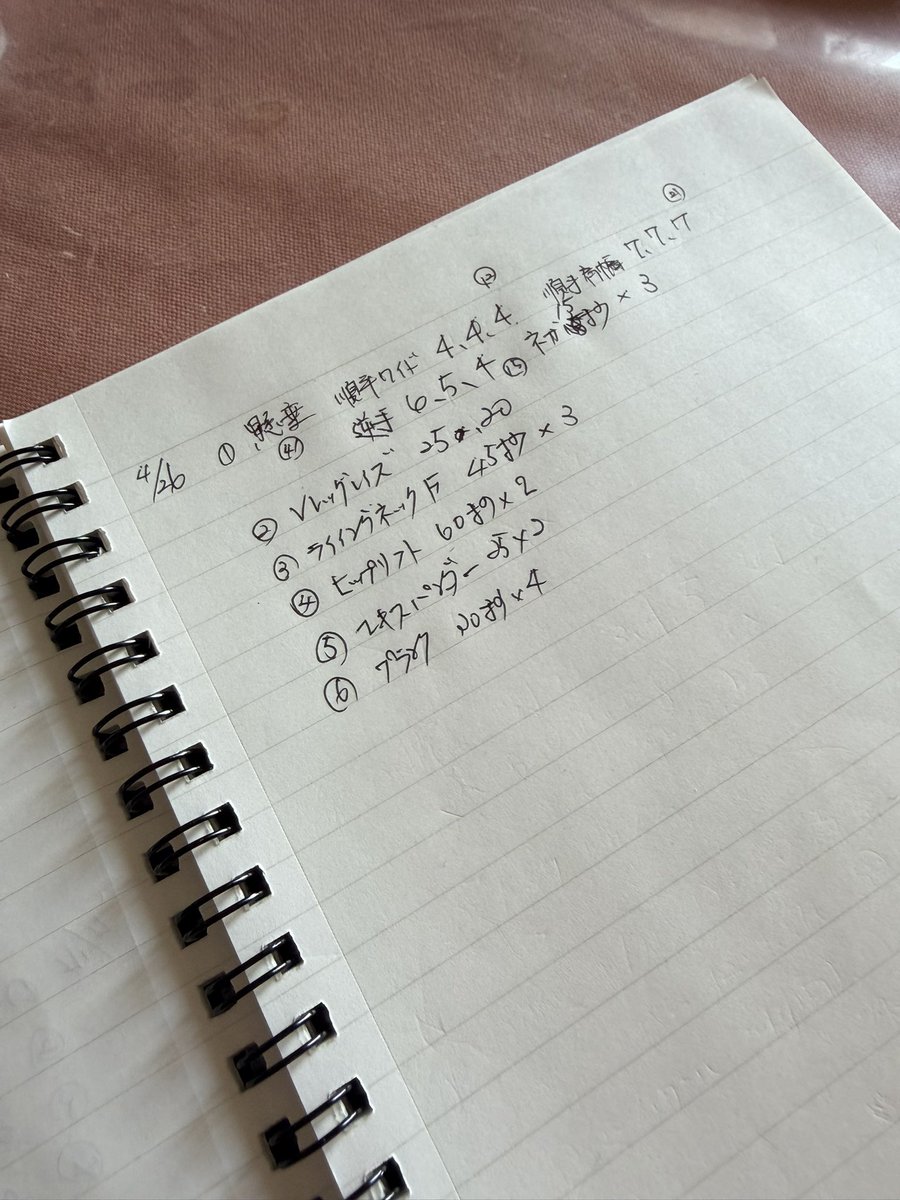 4/26 ① 懸垂 順手ワイド 4、4、4 ⑫ 順手肩幅 7、7、7 ㉑
㊽ 逆手 6、5、4 ⑮ ネガ 15秒 × 3
② Vレッグレイズ 25、20
③ ライイングネックF 45秒 × 3
④ ヒップリフト 60秒 × 2
⑤ エキスパンダー 25 × 2
⑥ プランク 20秒 × 4